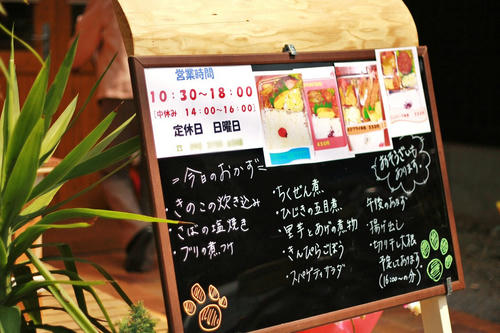 営業時間
10:30~18:00
[中休み 14:00~16:00]
定休日 日曜日
=今日のおかず=
・きのこの炊き込み
・さばの塩焼き
・ブリの煮つけ
・ちくぜん煮
・ひじきの五目煮
・里芋とあげの煮物
・きんぴらごぼう
・スパゲティサラダ
午後のおかず
・揚げ出し
・切り干し大根
予定しております
(16:00~の分)
おぞうざいも
あります